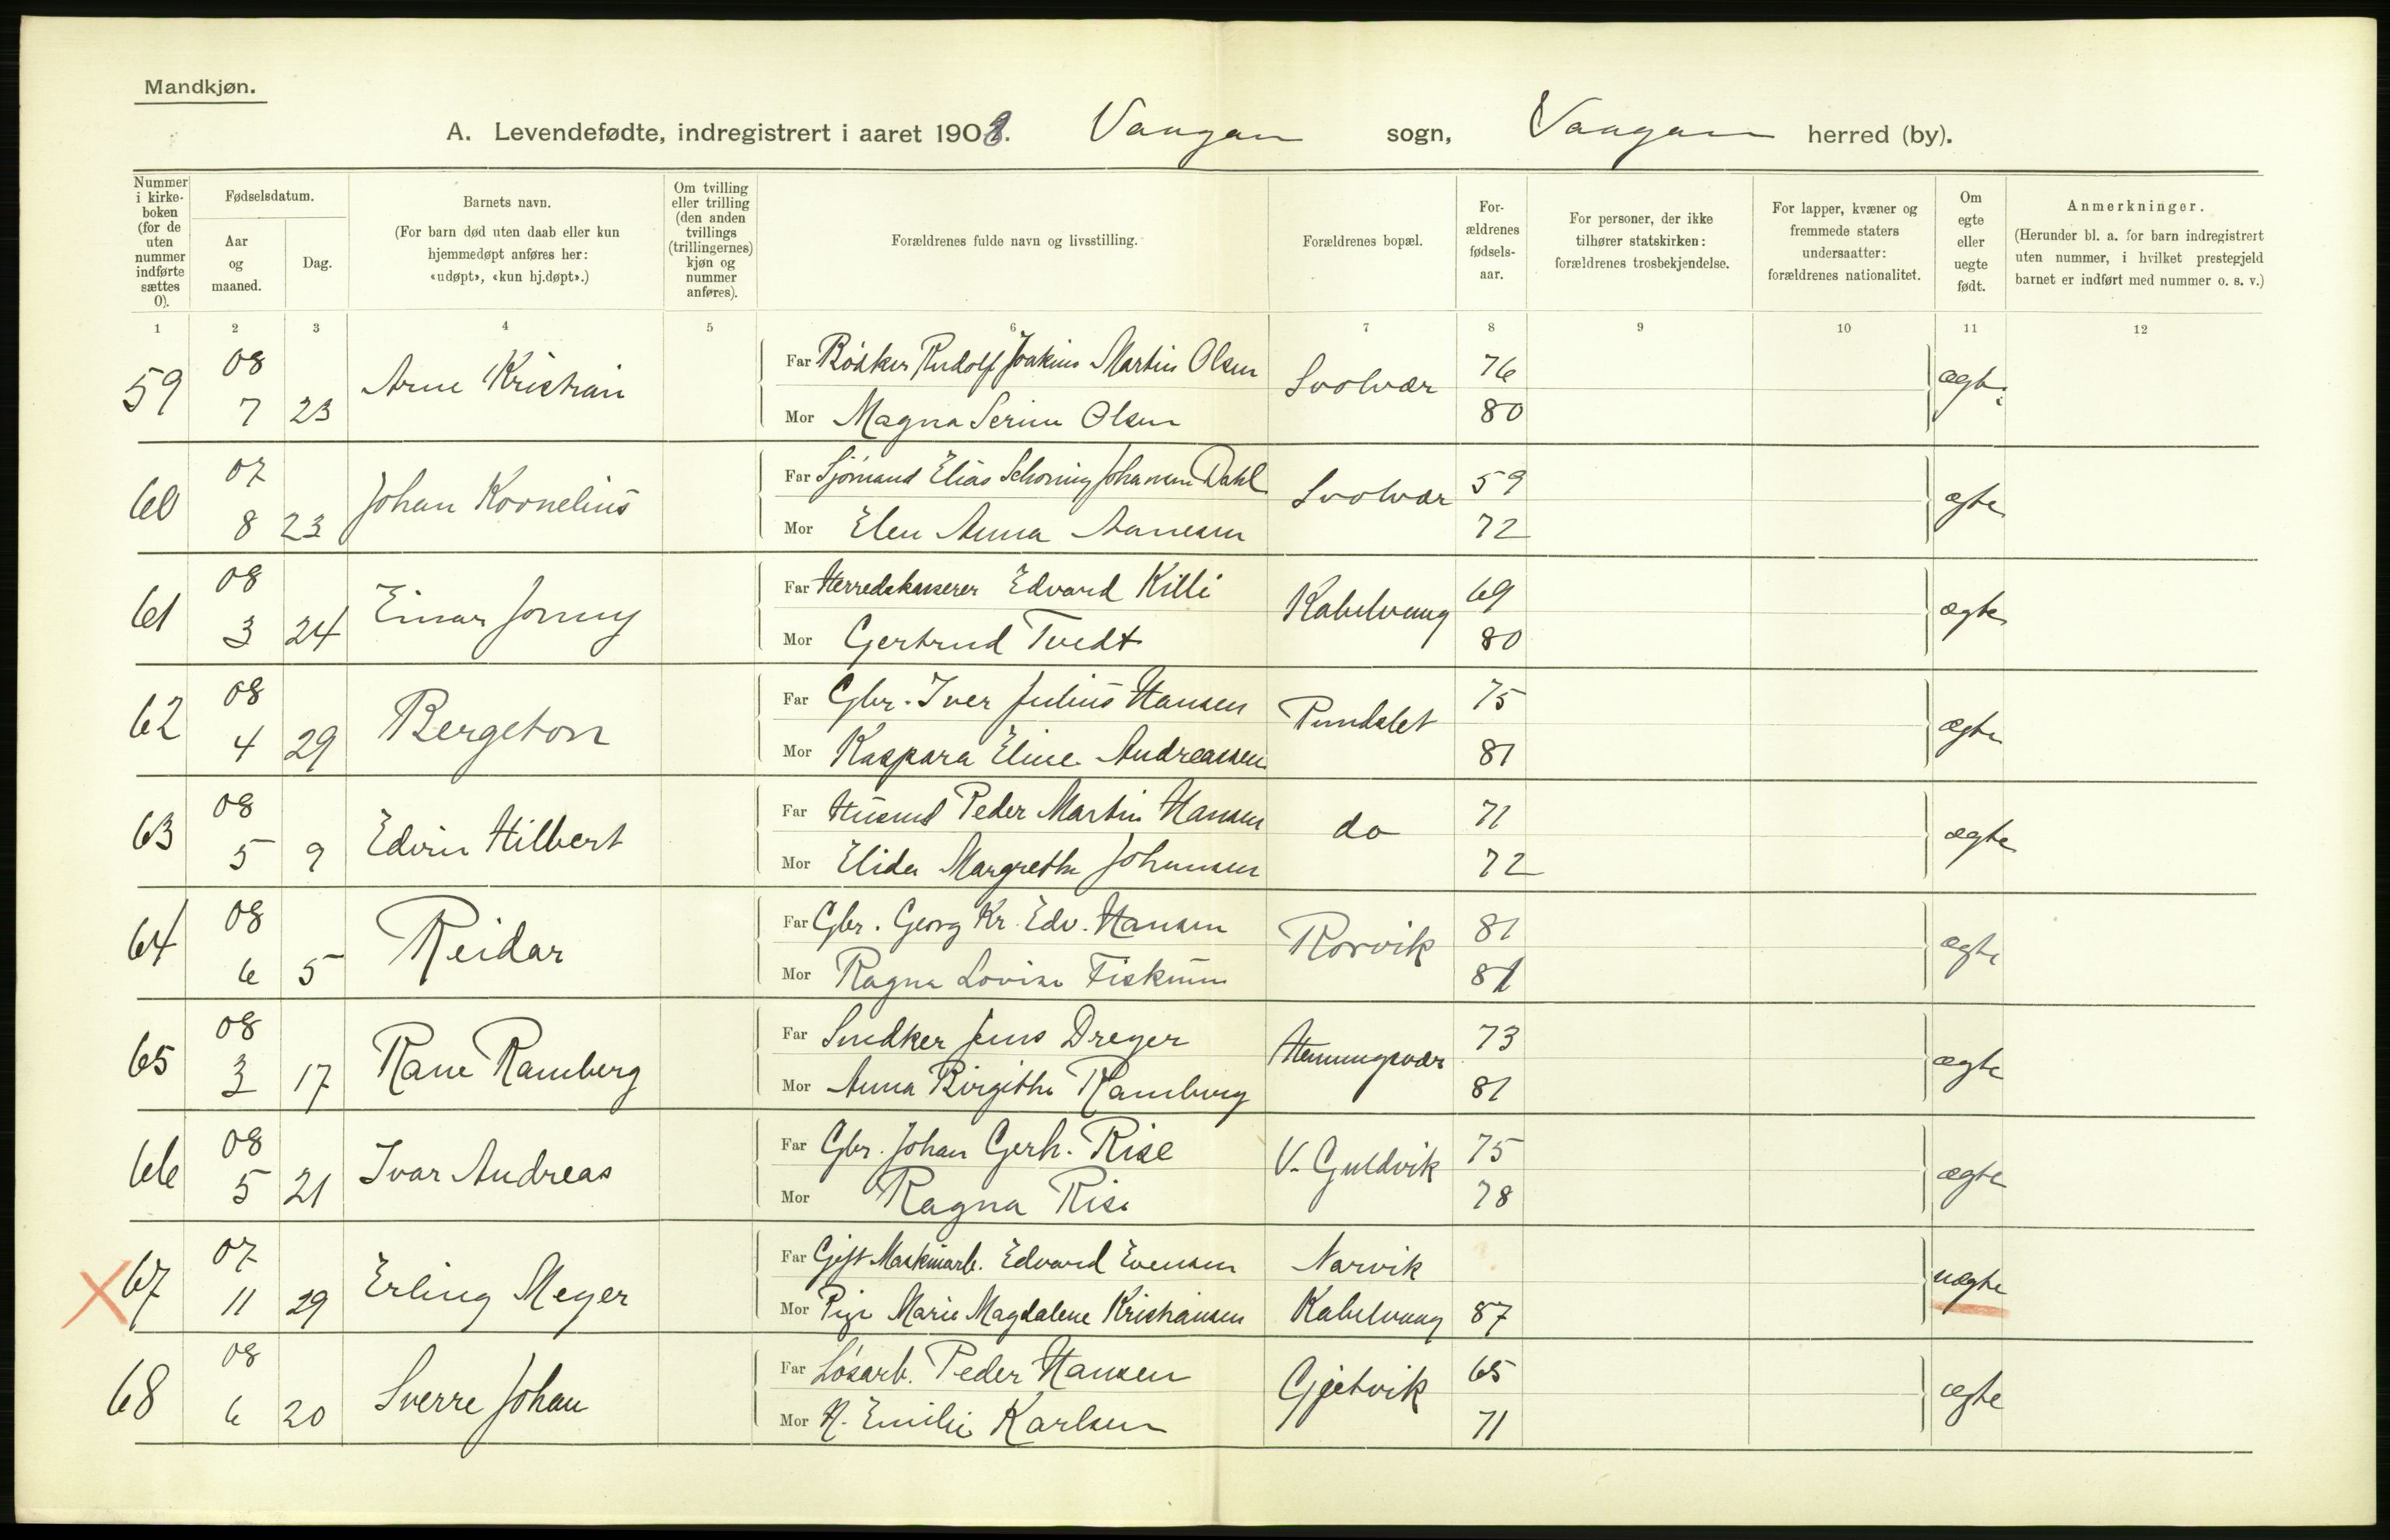 Mandkjøn.
A. Levendefødte, indregistrert i aaret 1908. Vaagan sogn, Vaagan herred (by).
Nummer i kirkeboken (for de uten nummer indførte sættes 0).
Fødselsdatum.
Aar og maaned.
Dag.
Barnets navn.
(For barn død uten daab eller kun hjemmedøpt anføres her: «udøpt», «kun hj.døpt».)
Om tvilling eller trilling (den anden tvillings (trillingernes) kjøn og nummer anføres).
Forældrenes fulde navn og livsstilling.
Forældrenes bopæl.
Forældrenes fødselsaar.
For personer, der ikke tilhører statskirken: forældrenes trosbekjendelse.
For lapper, kvæner og fremmede staters undersaatter: forældrenes nationalitet.
Om egte eller uegte født.
Anmerkninger.
(Herunder bl. a. for barn indregistrert uten nummer, i hvilket prestegjeld barnet er indført med nummer o. s. v.)
1 2 3 4 5 6 7 8 9 10 11 12
59 08 7 23 Arne Kristian Far Bödker Rudolf Joakim Martin Olsen Svolvær 76 ægte
Mor Magna Serine Olsen 80
60 07 8 23 Johan Kornelius Far Sjömand Elias Schöning Johansen Dahl Svolvær 59 ægte
Mor Elen Anna Aanesen 72
61 08 3 24 Einar Jonny Far Herredskasserer Edvard Killi Kabelvaag 69 ægte
Mor Gertrud Tvedt 80
62 08 4 29 Bergeton Far Gbr. Iver Julius Hansen Pundslet 75 ægte
Mor Kaspara Eline Andreassen 81
63 08 5 9 Edvin Hilbert Far Husmd Peder Martin Hansen do 71 ægte
Mor Elida Margrethe Johansen 72
64 08 6 5 Reidar Far Gbr. Georg Kr. Edv. Hansen Rorvik 81 ægte
Mor Ragna Lovise Fiskum 81
65 08 3 17 Rane Ramberg Far Snedker Jens Dreyer Henningsvær 73 ægte
Mor Anna Birgithe Ramberg 81
66 08 5 21 Ivar Andreas Far Gbr. Johan Gerh. Rise V. Guldvik 75 ægte
Mor Ragna Rise 78
67 07 11 29 Erling Meyer Far Gift Maskinarb. Edvard Evensen Narvik uægte
Mor Pige Marie Magdalene Kristiansen Kabelvaag 87
68 08 6 20 Sverre Johan Far Lösarb. Peder Hansen Gjetvik 65 ægte
Mor H. Emilie Karlsen 71